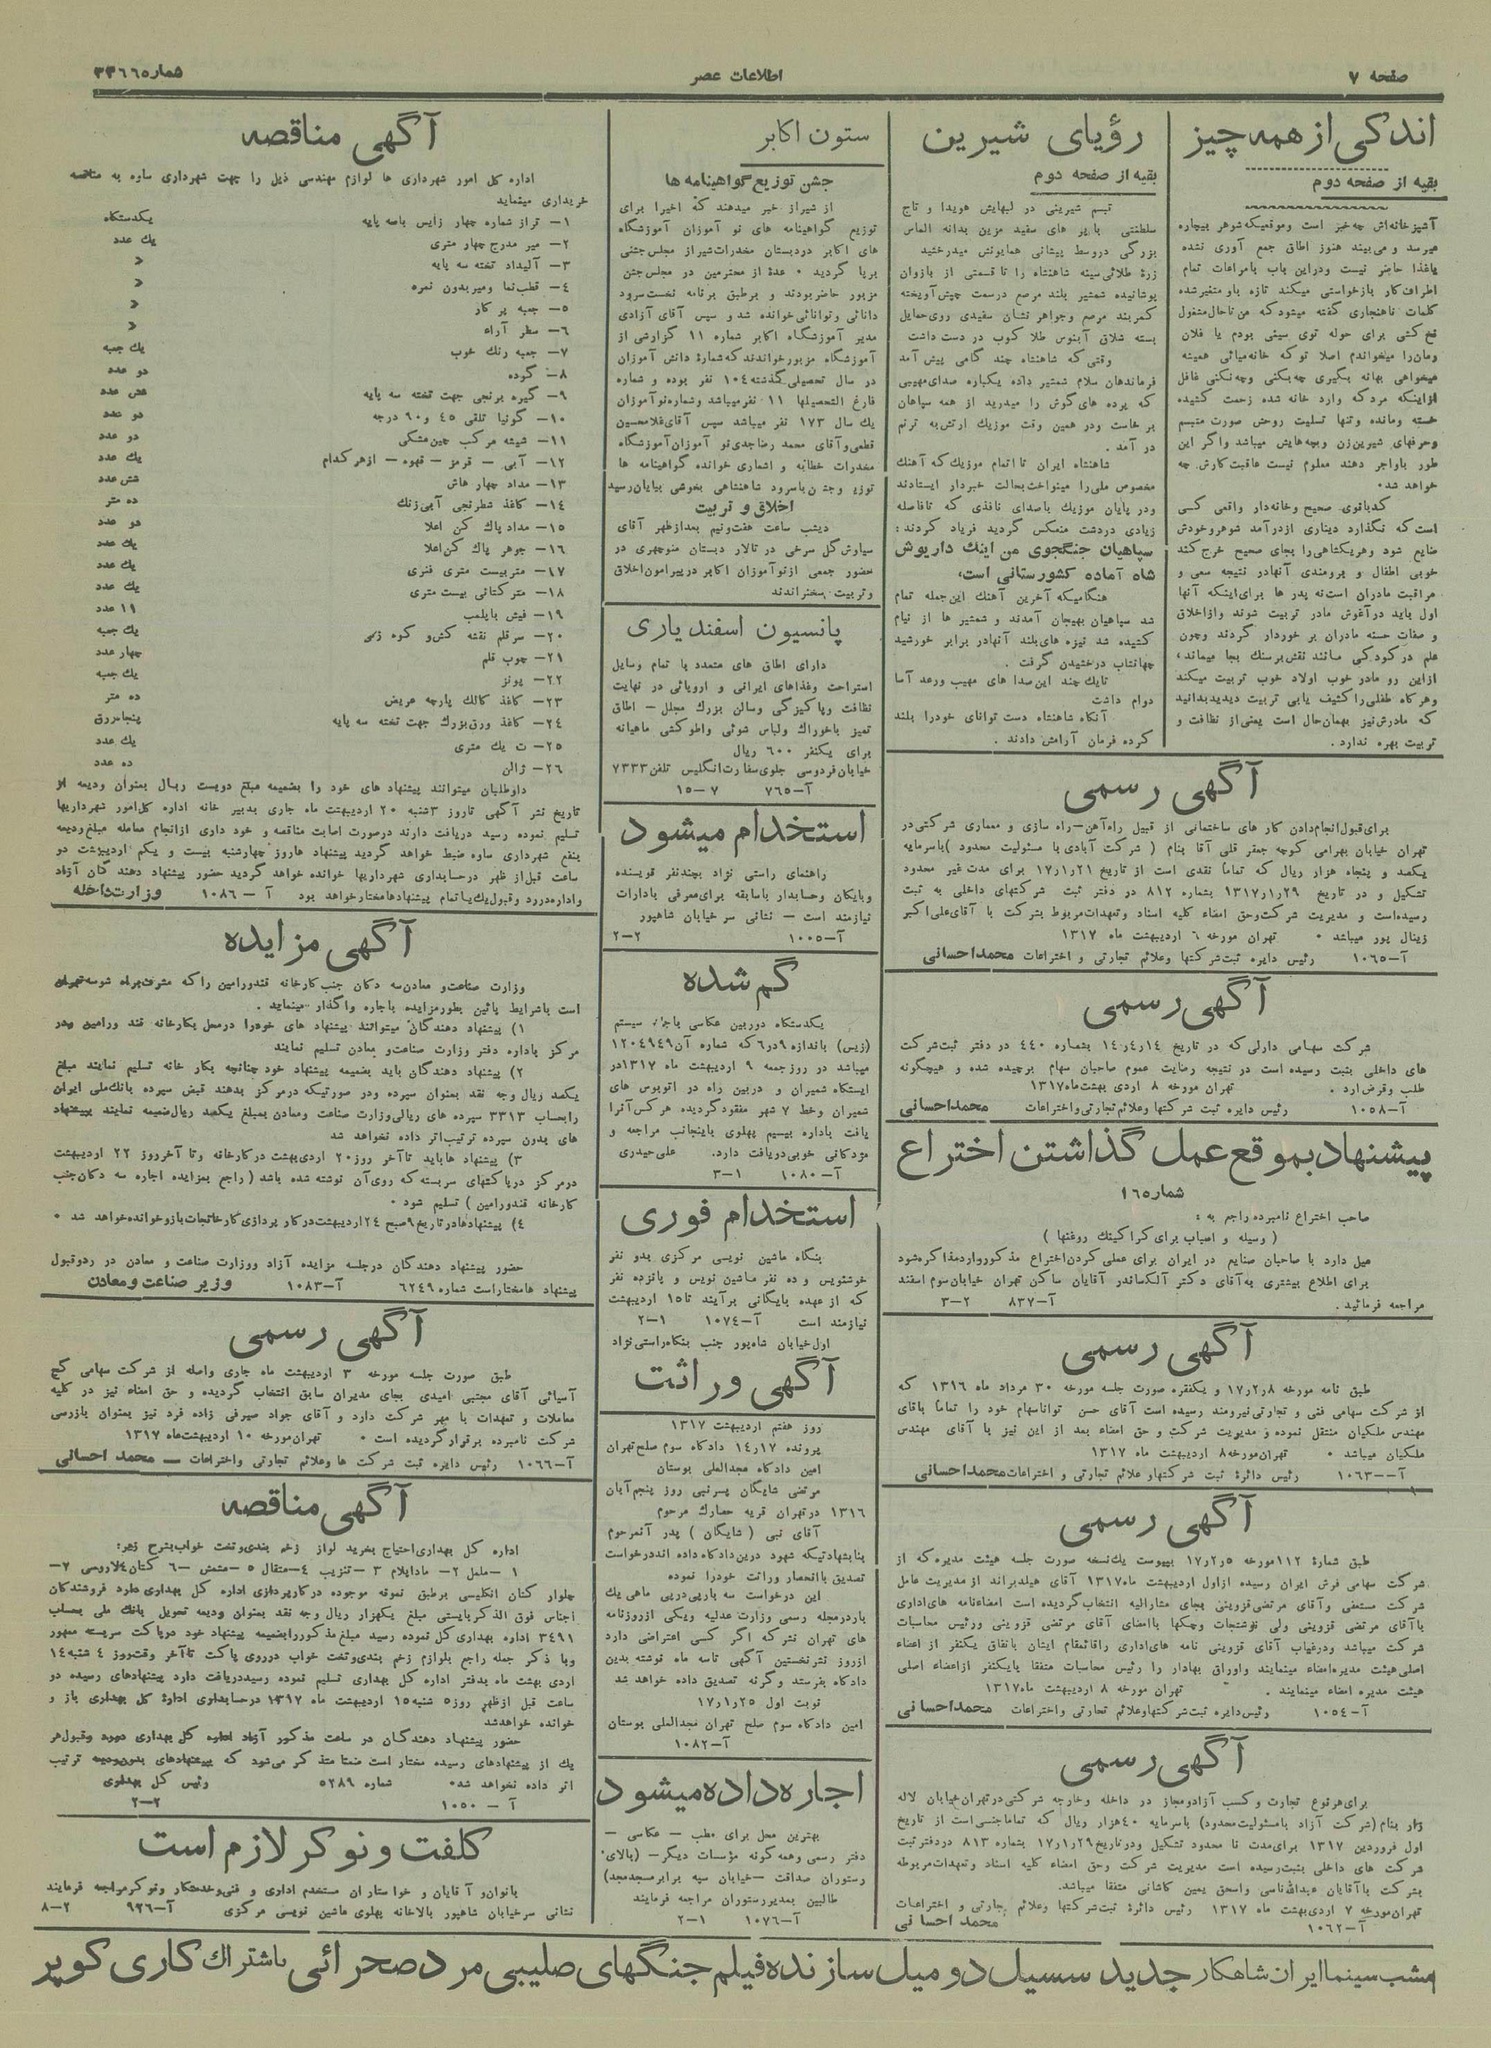 صفحه ۷
اطلاعات عصر
شماره ۳۳۶۶
اندکی از همه چیز
بقیه از صفحه دوم
آشپزخانه‌اش چه خبر است وموقعیکه شوهر بیچاره
میرسد و می‌بیند هنوز اطاق جمع آوری نشده
یاغذا حاضر نیست ودراین باب بامراعات تمام
اطراف کار بازخواستی میکند تازه باو متغیر شده
کلمات ناهنجاری گفته میشود که من تاحال مشغول
نخ کشی برای حوله توی سینی بودم یا فلان
رمان‌را میخواندم اصلا تو که خانه میائی همیشه
میخواهی بهانه بگیری چه بکنی وچه نکنی غافل
ازاینکه مرد که وارد خانه شده زحمت کشیده
خسته ومانده وتنها تسلیت روحش صورت متبسم
وحرفهای شیرین زن وبچه‌هایش میباشد واگر این
طور باواجر دهند معلوم نیست عاقبت کارش چه
خواهد شد.
کدبانوی صحیح وخانه‌دار واقعی کسی
است که نگذارد دیناری ازدرآمد شوهر وخودش
ضایع شود وهریکشاهی را بجای صحیح خرج کند
خوبی اطفال و برومندی آنهادر نتیجه سعی و
مراقبت مادران است نه پدر ها برای اینکه آنها
اول باید درآغوش مادر تربیت شوند وازاخلاق
و صفات حسنه مادران بر خوردار گردند وچون
علم در کودکی مانند نقش برسنک بجا میماند،
ازاین رو مادر خوب اولاد خوب تربیت میکند
وهرگاه طفلی را کثیف یابی تربیت دیدید بدانید
که مادرش نیز بهمان حال است یعنی از نظافت و
تربیت بهره ندارد.
رؤیای شیرین
بقیه از صفحه دوم
تبسم شیرینی در لبهایش هویدا و تاج
سلطنتی باپر های سفید مزین بدانه الماس
بزرگی دروسط پیشانی همایونش میدرخشید
زرهٔ طلائی سینه شاهنشاه را تا قسمتی از بازوان
پوشانیده شمشیر بلند مرصع درسمت چپش آویخته
کمربند مرصع وجواهر نشان سفیدی روی حمایل
بسته شلاق آبنوس طلا کوب در دست داشت
وقتی که شاهنشاه چند گامی پیش آمد
فرماندهان سلام شمشیر داده یکباره صدای مهیبی
که پرده های گوش را میدرید از همه سپاهان
بر خاست ودر همین وقت موزیك ارتش به ترنم
در آمد.
شاهنشاه ایران تا اتمام موزیك که آهنك
مخصوص ملی را مینواخت بحالت خبردار ایستادند
ودر پایان موزیك باصدای نافذی که تافاصله
زیادی دردشت منعکس گردید فریاد کردند:
سپاهیان جنگجوی من اینك داریوش
شاه آماده کشورستانی است،
هنگامیکه آخرین آهنك این جمله تمام
شد سپاهیان بهیجان آمدند و شمشیر ها از نیام
کشیده شد نیزه های بلند آنهادر برابر خورشید
جهانتاب درخشیدن گرفت.
تایك چند این صدا های مهیب ورعد آسا
دوام داشت
آنگاه شاهنشاه دست توانای خودرا بلند
کرده فرمان آرامش دادند.
آگهی رسمی
برای قبول انجام دادن کار های ساختمانی از قبیل راه‌آهن–راه سازی و معماری شرکتی در
تهران خیابان بهرامی کوچه جعفر قلی آقا بنام (شرکت آبادی با مسئولیت محدود) باسرمایه
یکصد و پنجاه هزار ریال که تماماً نقدی است از تاریخ ۱۷ر۱ر۲۱ برای مدت غیر محدود
تشکیل و در تاریخ ۱۳۱۷ر۱ر۲۹ بشماره ۸۱۲ در دفتر ثبت شرکتهای داخلی به ثبت
رسیده‌است و مدیریت شرکت وحق امضاء کلیه اسناد وتعهدات مربوط بشرکت با آقای علی اکبر
زینال پور میباشد. تهران مورخه ۶ اردیبهشت ماه ۱۳۱۷
آ–۱۰۶۵ رئیس دایره ثبت شرکتها وعلائم تجارتی و اختراعات محمداحسانی
آگهی رسمی
شرکت سهامی دارلی که در تاریخ ۱۴ر۴ر۱۴ بشماره ۴۴۰ در دفتر ثبت شرکت
های داخلی بثبت رسیده است در نتیجه رضایت عموم صاحبان سهام برچیده شده و هیچگونه
طلب وقرض‌ندارد. تهران مورخه ۸ اردی بهشت ماه ۱۳۱۷
آ–۱۰۵۸ رئیس دایره ثبت شرکتها وعلائم تجارتی واختراعات محمداحسانی
پیشنهاد بموقع عمل گذاشتن اختراع
شماره ۱۶۵
صاحب اختراع نامبرده راجع به:
(وسیله و اسباب برای کراکینك روغنها)
میل دارد با صاحبان صنایع در ایران برای عملی کردن اختراع مذکور وارد مذاکره شود
برای اطلاع بیشتری به آقای دکتر آلکساندر آقایان ساکن تهران خیابان سوم اسفند
مراجعه فرمائید. آ–۸۳۷ ۲–۳
آگهی رسمی
طبق نامه مورخه ۱۷ر۲ر۸ و یکفقره صورت جلسه مورخه ۳۰ مرداد ماه ۱۳۱۶ که
از شرکت سهامی فنی و تجارتی نیرومند رسیده است آقای حسن تواناسهام خود را تماماً باقای
مهندس ملکیان منتقل نموده و مدیریت شرکت و حق امضاء بعد از این نیز با آقای مهندس
ملکیان میباشد. تهران مورخه ۸ اردیبهشت ماه ۱۳۱۷
آ–۱۰۶۳ رئیس دائرهٔ ثبت شرکتها وعلائم تجارتی و اختراعات محمداحسانی
آگهی رسمی
طبق شمارهٔ ۱۱۲ مورخه ۱۷ر۲ر۵ بپیوست یك نسخه صورت جلسه هیئت مدیره که از
شرکت سهامی فرش ایران رسیده از اول اردیبهشت ماه ۱۳۱۷ آقای هیلدبراند از مدیریت عامل
شرکت مستعفی وآقای مرتضی قزوینی بجای مشارالیه انتخاب گردیده است امضاءنامه های اداری
باآقای مرتضی قزوینی ولی نوشتجات وچکها باامضای آقای مرتضی قزوینی ورئیس محاسبات
شرکت میباشد ودرغیاب آقای قزوینی نامه های‌اداری راقائمقام ایشان باتفاق یکنفر از اعضاء
اصلی هیئت مدیره امضاء مینمایند واوراق بهادار را رئیس محاسبات متفقا بایکنفر ازاعضاء اصلی
هیئت مدیره امضاء مینمایند. تهران مورخه ۸ اردیبهشت ماه ۱۳۱۷
آ–۱۰۵۴ رئیس دایره ثبت شرکتها وعلائم تجارتی واختراعات محمداحسانی
آگهی رسمی
برای هر نوع تجارت وکسب آزاد ومجاز در داخله وخارجه شرکتی در تهران خیابان لاله
زار بنام (شرکت آزاد بامسئولیت محدود) باسرمایه ۴۰ هزار ریال که تماماجنسی است از تاریخ
اول فروردین ۱۳۱۷ برای‌مدت نا محدود تشکیل ودر تاریخ ۱۷ر۱ر۲۹ بشماره ۸۱۳ دردفتر ثبت
شرکت های داخلی بثبت رسیده است مدیریت شرکت وحق امضاء کلیه اسناد وتعهدات مربوطه
بشرکت باآقایان عبدالله ناسی واسحق یمین کاشانی متفقا میباشد.
تهران مورخه ۷ اردی بهشت ماه ۱۳۱۷ رئیس دائرهٔ ثبت شرکتها وعلائم تجارتی و اختراعات
آ–۱۰۶۲ محمد احسانی
ستون اکابر
جشن توزیع گواهینامه ها
از شیراز خبر میدهند که اخیرا برای
توزیع گواهینامه های نو آموزان آموزشگاه
های اکابر دردبستان مخدرات شیراز مجلس جشنی
برپا گردید. عدهٔ از محترمین در مجلس جشن
مزبور حاضر بودند و برطبق برنامه نخست سرود
دانائی وتوانائی خوانده شد و سپس آقای آزادی
مدیر آموزشگاه اکابر شماره ۱۱ گزارشی از
آموزشگاه مزبور خواندند که شمارهٔ دانش آموزان
در سال تحصیلی گذشته ۱۰۴ نفر بوده و شماره
فارغ التحصیلها ۱۱ نفر میباشد وشماره نو آموزان
یك سال ۱۷۳ نفر میباشد سپس آقای غلامحسین
قطمی وآقای محمد رضا جدی نو آموزان آموزشگاه
مخدرات خطابه و اشعاری خوانده گواهینامه ها
توزیع وجشن باسرود شاهنشاهی بخوشی بپایان رسید
اخلاق و تربیت
دیشب ساعت هفت‌ونیم بعدازظهر آقای
سیاوش گل سرخی در تالار دبستان منوچهری در
حضور جمعی از نو آموزان اکابر درپیرامون اخلاق
وتربیت سخنراندند
پانسیون اسفندیاری
دارای اطاق های متعدد با تمام وسایل
استراحت وغذاهای ایرانی و اروپائی در نهایت
نظافت وپاکیزگی وسالن بزرك مجلل – اطاق
تمیز باخوراك ولباس شوئی واطو کشی ماهیانه
برای یکنفر ۶۰۰ ریال
خیابان فردوسی جلوی سفارت انگلیس تلفن ۷۳۳۳
آ–۷۶۵ ۷–۱۵
استخدام میشود
راهنمای راستی نژاد بچند نفر نویسنده
وبایگان وحسابدار باسابقه برای معرفی بادارات
نیازمند است – نشانی سر خیابان شاهپور
آ–۱۰۰۵ ۲–۲
گم شده
یکدستگاه دوربین عکاسی سیستم
(زیس) باندازه ۹در۶ که شماره آن ۱۲۰۴۹۴۹
میباشد در روز جمعه ۹ اردیبهشت ماه ۱۳۱۷در
ایستگاه شمیران و دربین راه در اتوبوس های
شمیران وخط ۷ شهر مفقود گردیده هر کس آنرا
یافت باداره بیسیم پهلوی باینجانب مراجعه و
مژدگانی خوبی دریافت دارد. علی حیدری
آ–۱۰۸۰ ۱–۳
استخدام فوری
بنگاه ماشین نویسی مرکزی بدو نفر
خوشنویس و ده نفر ماشین نویس و پانزده نفر
که از عهده بایگانی برآیند تا ۱۵ اردیبهشت
نیازمند است آ–۱۰۷۴ ۱–۲
اول خیابان شاه‌پور جنب بنگاه راستی نژاد
آگهی وراثت
روز هفتم اردیبهشت ۱۳۱۷
پرونده ۱۷ر۱۴ دادگاه سوم صلح تهران
امین دادگاه مجدالعلی بوستان
مرتضی شایگان پسر نبی روز پنجم آبان
۱۳۱۶ در تهران قریه حصارك مرحوم
آقای نبی (شایگان) پدر آنمرحوم
بنا بشهادتیکه شهود درین دادگاه داده اند درخواست
تصدیق باانحصار وراثت خودرا نموده
این درخواست سه بارپی درپی ماهی یك
بار درمجله رسمی وزارت عدلیه ویکی ازروزنامه
های تهران نشر که اگر کسی اعتراضی دارد
ازروز نشر نخستین آگهی تاسه ماه نوشته بدین
دادگاه بفرستد وگرنه تصدیق داده خواهد شد
نوبت اول ۱۷ر۱ر۲۵
امین دادگاه سوم صلح تهران مجدالعلی بوستان
آ–۱۰۸۲
اجاره داده میشود
بهترین محل برای مطب – عکاسی –
دفتر رسمی وهمه گونه مؤسسات دیگر – (بالای
رستوران صداقت – خیابان سپه برابر مسجدمجد)
طالبین بمدیر رستوران مراجعه فرمایند
آ–۱۰۷۶ ۱–۲
آگهی مناقصه
اداره کل امور شهرداری ها لوازم مهندسی ذیل را جهت شهرداری ساوه به مناقصه
خریداری مینماید
۱– تراز شماره چهار زایس باسه پایه یکدستگاه
۲– میر مدرج چهار متری یك عدد
۳– آلیداد تخته سه پایه »
۴– قطب‌نما ومیر بدون نمره »
۵– جعبه پر کار »
۶– سطر آراء »
۷– جعبه رنك خوب یك جعبه
۸– گوده دو عدد
۹– گیره برنجی جهت تخته سه پایه شش عدد
۱۰– گونیا تلقی ۴۵ و ۶۰ درجه دو عدد
۱۱– شیشه مرکب چین مشکی دو عدد
۱۲– آبی – قرمز – قهوه – ازهر کدام یك عدد
۱۳– مداد چهار هاش شش عدد
۱۴– کاغذ شطرنجی آبی رنك ده متر
۱۵– مداد پاك کن اعلا دو عدد
۱۶– جوهر پاك کن اعلا یك عدد
۱۷– متر بیست متری فنری یك عدد
۱۸– متر کتانی بیست متری یك عدد
۱۹– فیش بایلمب ۱۱ عدد
۲۰– سرقلم نقشه کش و کوه یك جعبه
۲۱– چوب قلم چهار عدد
۲۲– پونز یك جعبه
۲۳– کاغذ کالك پارچه عریض ده متر
۲۴– کاغذ ورق بزرك جهت تخته سه پایه پنجاه ورق
۲۵– ت یك متری یك عدد
۲۶– ژالن ده عدد
داوطلبان میتوانند پیشنهاد های خود را بضمیمه مبلغ دویست ریال بعنوان ودیعه از
تاریخ نشر آگهی تاروز ۳شنبه ۲۰ اردیبهشت ماه جاری بدبیر خانه اداره کل امور شهرداریها
تسلیم نموده رسید دریافت دارند درصورت اصابت مناقصه و خود داری ازانجام معامله مبلغ ودیعه
بنفع شهرداری ساوه ضبط خواهد گردید پیشنهاد هاروز چهارشنبه بیست و یکم اردیبهشت دو
ساعت قبل از ظهر درحسابداری شهرداریها خوانده خواهد گردید حضور پیشنهاد دهندگان آزاد
واداره‌دررد وقبول یك یاتمام پیشنهادها مختار خواهد بود آ–۱۰۸۶ وزارت داخله
آگهی مزایده
وزارت صناعت و معادن سه دکان جنب کارخانه قند ورامین راکه مشرف براه شوسه تهران
است باشرایط پائین بطور مزایده باجاره واگذار مینماید.
۱) پیشنهاد دهندگان میتوانند پیشنهاد های خودرا درمحل بکارخانه قند ورامین ودر
مرکز باداره دفتر وزارت صناعت و معادن تسلیم نمایند
۲) پیشنهاد دهندگان باید بضمیمه پیشنهاد خود چنانچه بکار خانه تسلیم نمایند مبلغ
یکصد ریال وجه نقد بعنوان سپرده ودر صورتیکه درمرکز بدهند قبض سپرده بانك ملی ایران
رابحساب ۳۳۱۳ سپرده های ریالی وزارت صناعت ومعادن بمبلغ یکصد ریال ضمیمه نمایند پیشنهاد
های بدون سپرده ترتیب اثر داده نخواهد شد
۳) پیشنهاد هاباید تاآخر روز ۲۰ اردی بهشت در کارخانه وتا آخر روز ۲۲ اردیبهشت
درمرکز درپاکتهای سربسته که روی آن نوشته شده باشد (راجع بمزایده اجاره سه دکان جنب
کارخانه قندورامین) تسلیم شود.
۴) پیشنهادها درتاریخ ۹صبح ۲۴ اردیبهشت در کار پردازی کارخانجات بازوخوانده خواهد شد.
حضور پیشنهاد دهندگان درجلسه مزایده آزاد ووزارت صناعت و معادن در ردوقبول
پیشنهاد هامختار است شماره ۶۲۴۹ آ–۱۰۸۳ وزیر صناعت و معادن
آگهی رسمی
طبق صورت جلسه مورخه ۳ اردیبهشت ماه جاری واصله از شرکت سهامی گچ
آسیائی آقای مجتبی امیدی بجای مدیران سابق انتخاب گردیده و حق امضاء نیز در کلیه
معاملات و تعهدات با مهر شرکت دارد و آقای جواد صیرفی زاده فرد نیز بعنوان بازرسی
شرکت نامبرده برقرار گردیده است. تهران مورخه ۱۰ اردیبهشت ماه ۱۳۱۷
آ–۱۰۶۶ رئیس دایره ثبت شرکت ها وعلائم تجارتی واختراعات – محمد احسانی
آگهی مناقصه
اداره کل بهداری احتیاج بخرید لوازم زخم بندی وتخت خواب بشرح زیر:
۱ –ململ ۲– مادایلام ۳– تنزیب ۴–متقال ۵–مشمش –۶ کتان ۴لاروسی ۷–
چلوار کتان انگلیسی برطبق نمونه موجوده در کارپردازی اداره کل بهداری دارد فروشندگان
اجناس فوق الذکر بایستی مبلغ یکهزار ریال وجه نقد بعنوان ودیعه تحویل بانك ملی بحساب
۳۴۹۱ اداره بهداری کل نموده رسید مبلغ مذکور رابضمیمه پیشنهاد خود درپاکت سربسته ممهور
وبا ذکر جمله راجع بلوازم زخم بندی وتخت خواب درروی پاکت تاآخر وقت روز ۴ شنبه ۱۴
اردی بهشت ماه بدفتر اداره کل بهداری تسلیم نموده رسید دریافت دارد پیشنهادهای رسیده دو
ساعت قبل ازظهر روز ۵ شنبه ۱۵ اردیبهشت ماه ۱۳۱۷ درحسابداری ادارهٔ کل بهداری باز و
خوانده خواهد شد
حضور پیشنهاد دهندگان در ساعت مذکور آزاد اداره کل بهداری دررد وقبول هر
یك از پیشنهادهای رسیده مختار است ضمنا متذکر می‌شود که پیشنهادهای بدون ودیعه ترتیب
اثر داده نخواهد شد. شماره ۵۲۸۹ رئیس کل بهداری
آ–۱۰۵۰ ۲–۲
کلفت و نوکر لازم است
بانوان و آقایان و خواستاران مستخدم اداری و فنی وخدمتکار ونوکر مراجعه فرمایند
نشانی سرخیابان شاهپور بالاخانه پهلوی ماشین نویسی مرکزی آ–۹۲۶ ۲–۸
امشب سینما ایران شاهکار جدید سسیل دومیل سازنده فیلم جنگهای صلیبی مرد صحرائی باشتراك کاری کوپر